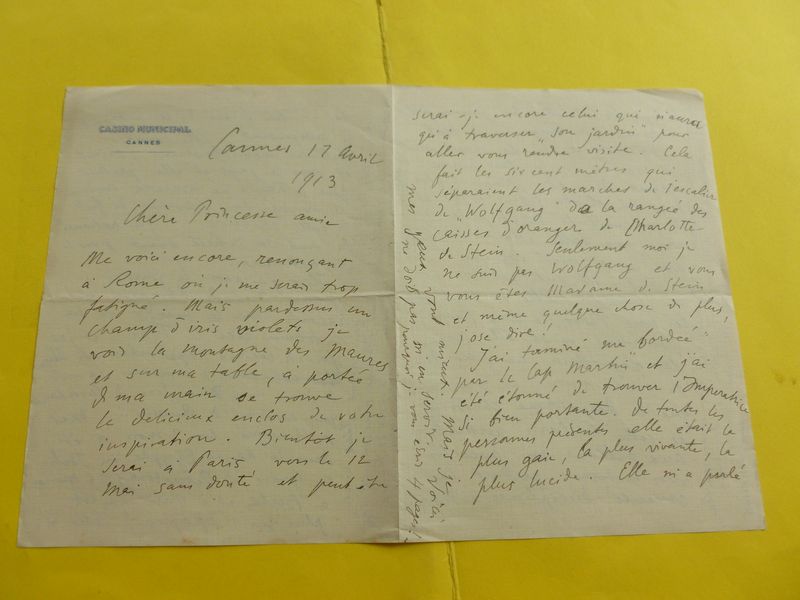 CASINO MUNICIPAL
CANNES
Cannes 17 avril
1913
Chère Princesse amie
Me voici encore, renonçant
à Rome où je me serais trop
fatigué. Mais pardessus un
champ d'iris violets je
vois la montagne des Maures
et sur ma table, à portée
de ma main se trouve
le delicieux enclos de votre
inspiration. Bientôt je
serai à Paris vers le 12
Mai sans doute et peut être
serai-je encore celui qui n'aura
qu'à traverser "son jardin" pour
aller vous rendre visite. Cela
fait les six cent mètres qui
séparaient les marches de l'escalier
de "Wolfgang" de la rangée des
caisses d'oranger de Charlotte
de Stein. Seulement moi je
ne suis pas Wolfgang et vous
vous êtes Madame de Stein
et même quelque chose de plus,
j'ose dire!
J'ai terminé ma "bordée"
par le Cap Martin et j'ai
été étonné de trouver l'Imperatrice
si bien portante. De toutes les
personnes présentes elle était la
plus gaie, la plus vivante, la
plus lucide. Elle m'a parlé
mes yeux vont mieux. Mais je
ne dois pas m'en servir. Voici
pourquoi je vous écris 4 pages!